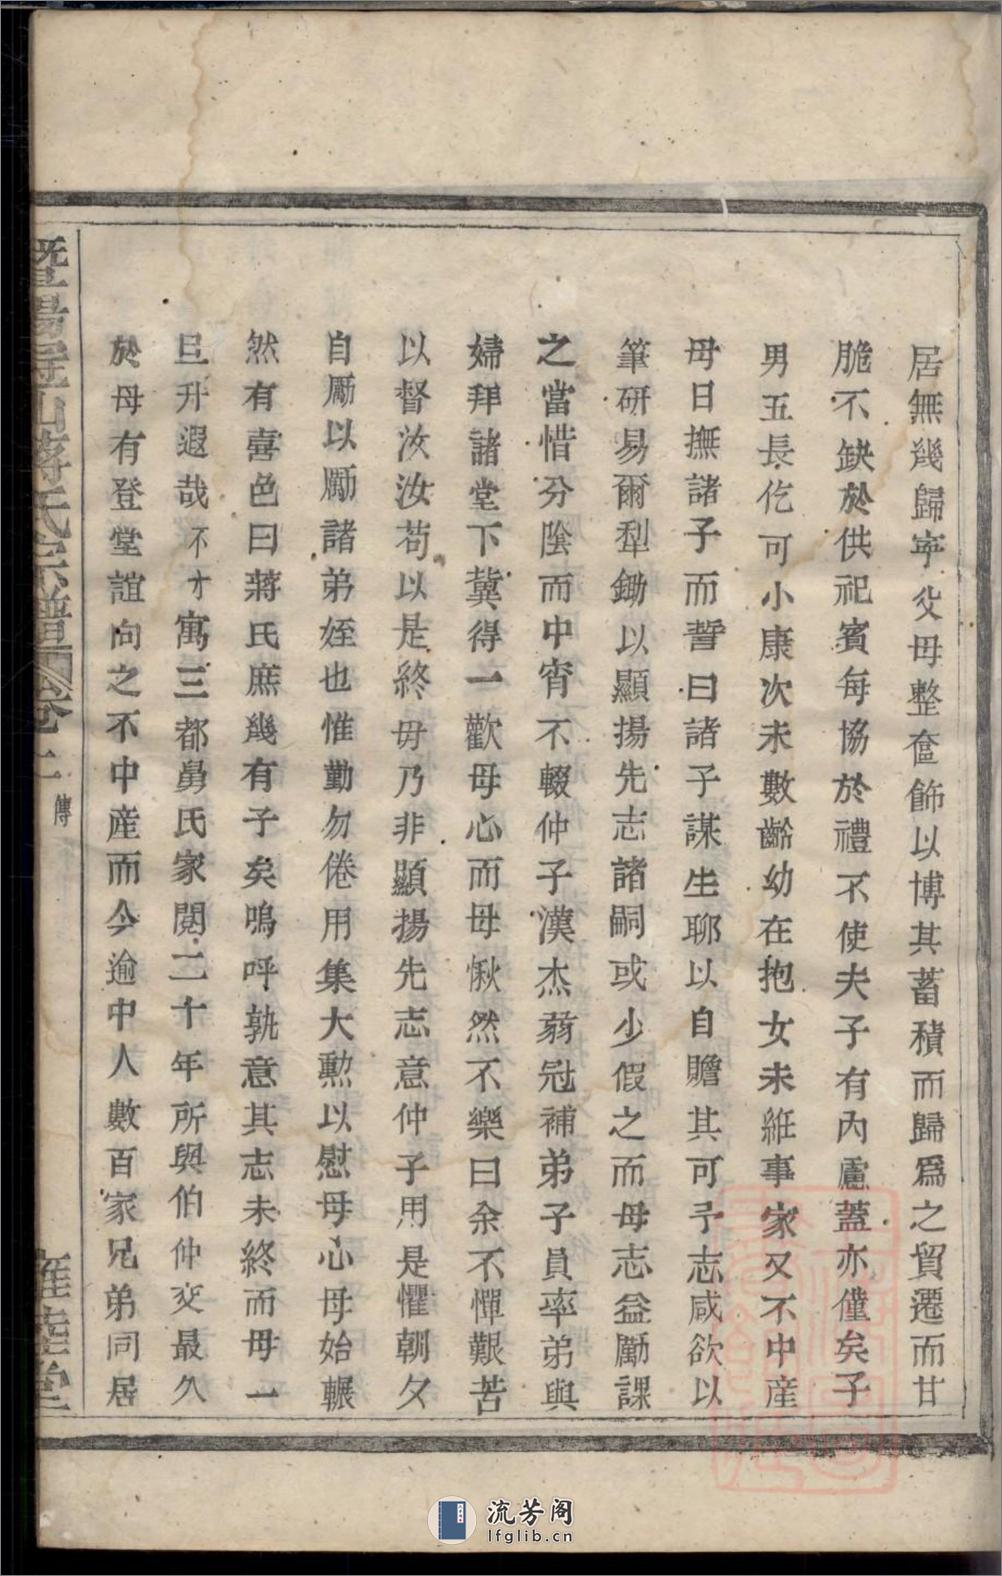 居無幾歸寧父母整奩飾以博其蓄積而歸爲之貿遷而甘
脆不缺於供祀賓每協於禮不使夫子有內慮蓋亦僅矣子
男五長仡可小康次未數齡幼在抱女未絍事家又不中産
母日撫諸子而誓曰諸子謀生聊以自贍其可予志咸欲以
筆研易爾犁鋤以顯揚先志諸嗣或少假之而母志益勵課
之當惜分陰而中宵不輟仲子漢杰弱冠補弟子員率弟與
婦拜諸堂下冀得一歡母心而母愀然不樂曰余不憚艱苦
以督汝汝苟以是終毋乃非顯揚先志意仲子用是懼朝夕
自勵以勵諸弟姪也惟勤勿倦用集大勲以慰母心母始囅
然有喜色曰蔣氏庶幾有子矣嗚呼孰意其志未終而母一
旦升遐哉不才寓三都舅氏家閱二十年所與伯仲交最久
於母有登堂誼向之不中産而今逾中人數百家兄弟同居
暨陽冠山蔣氏宗譜 卷二 傳
流芳阁
lfglib.cn